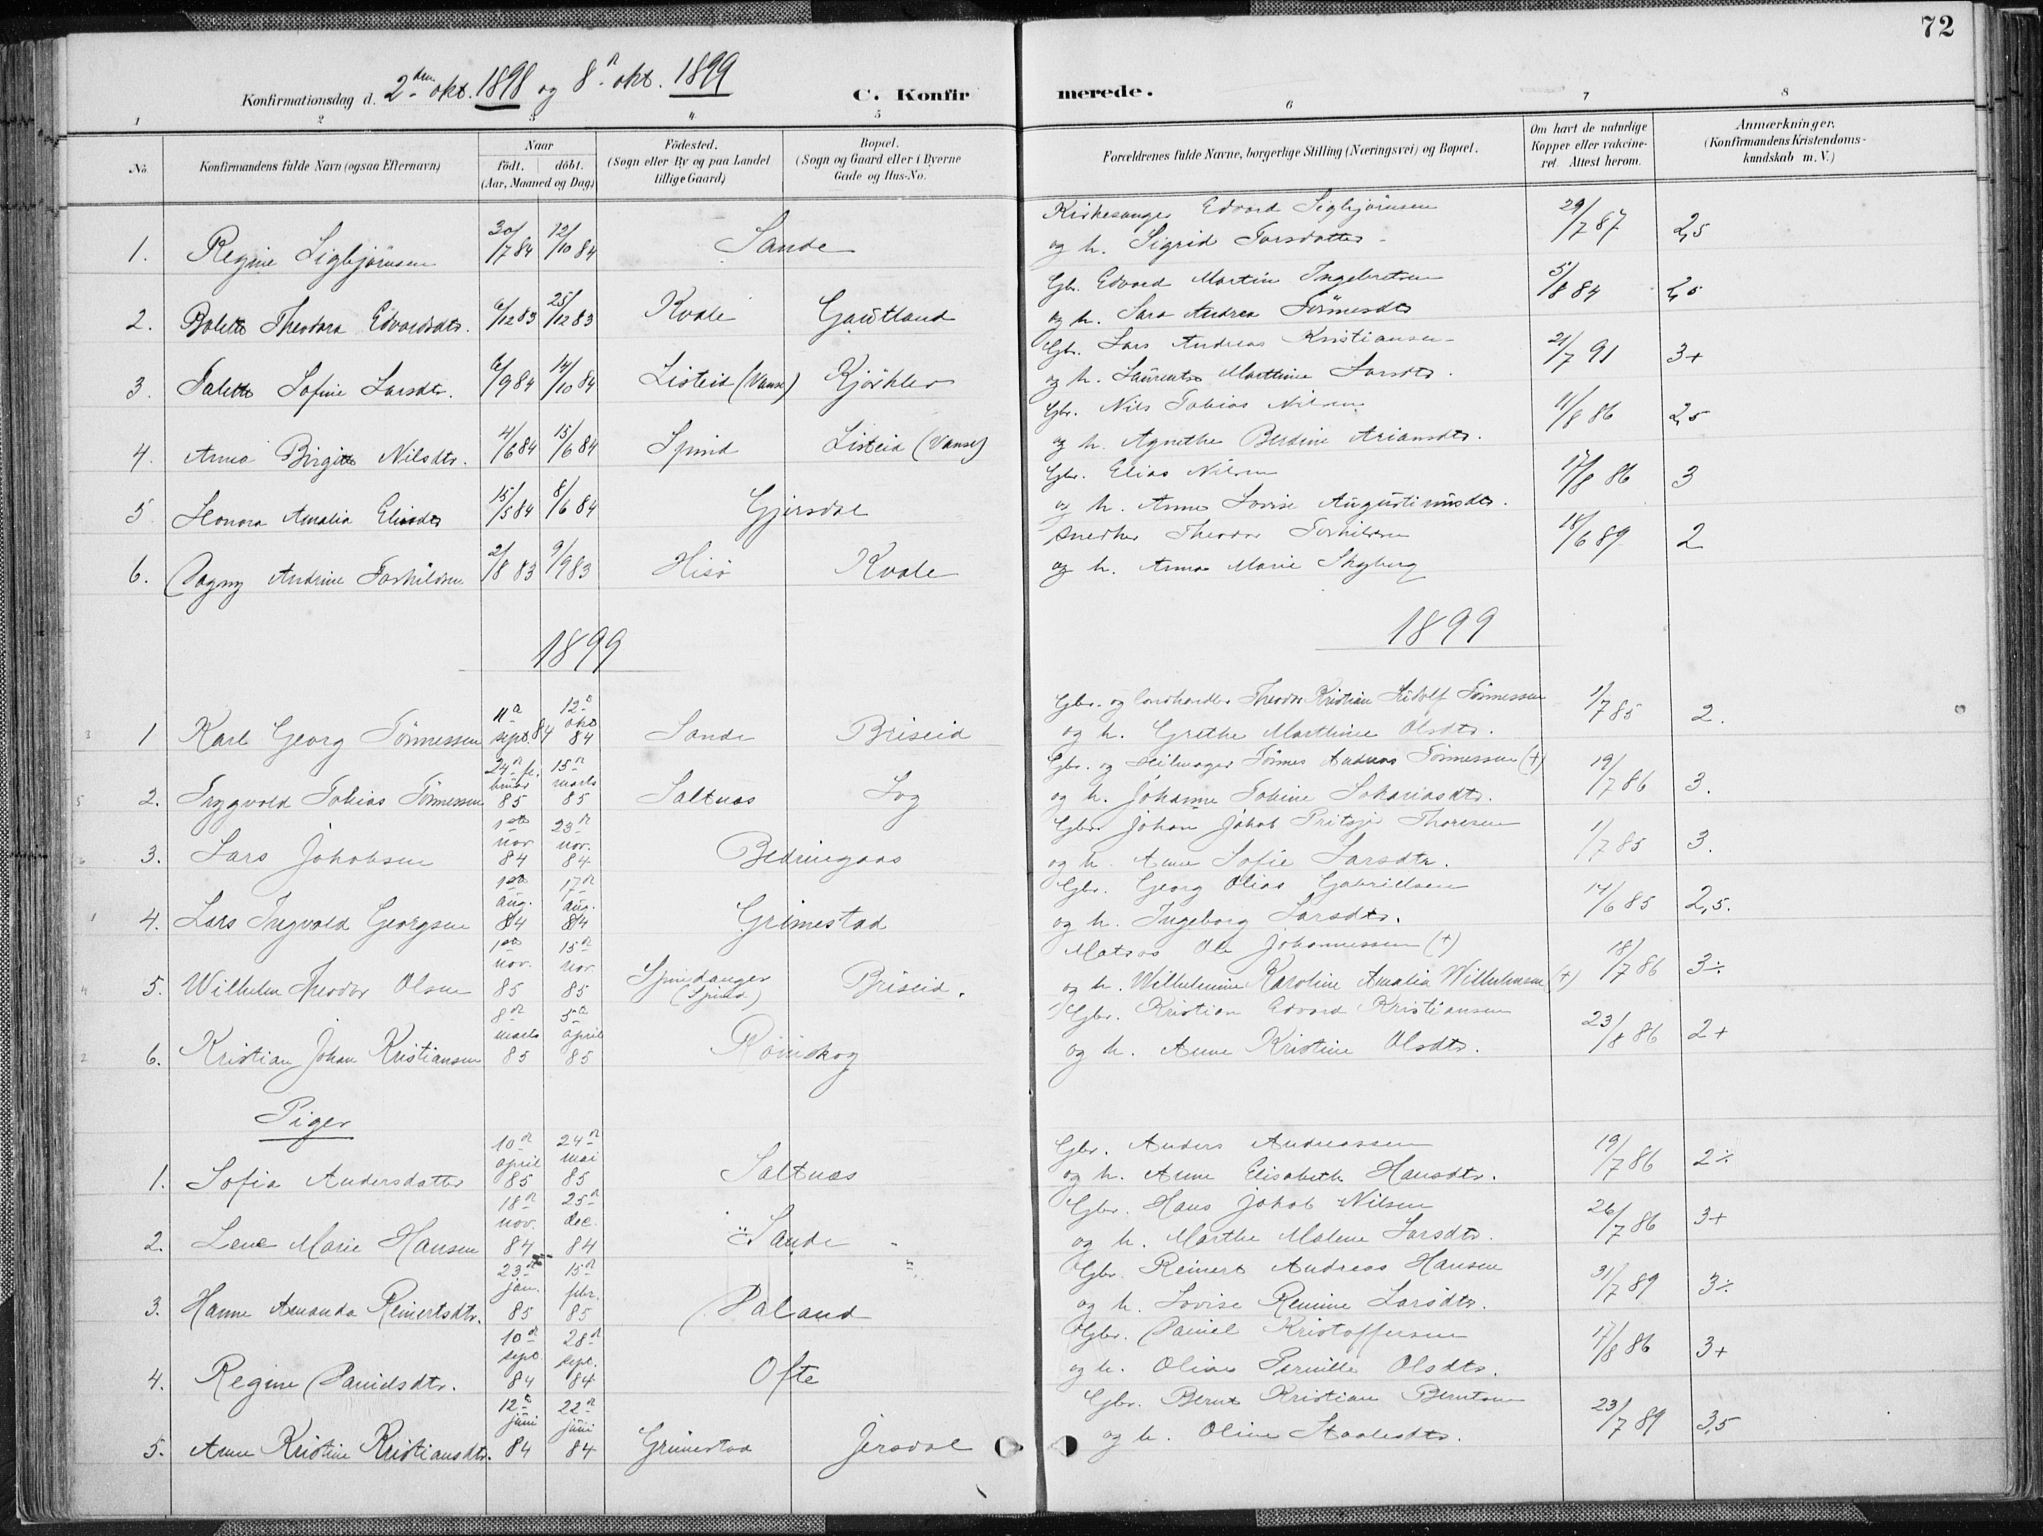 72
Konfirmationsdag d. 2den okt. 1898 og 8n okt. 1899
C. Konfirmerede.
1 2 3 4 5 6 7 8
No
Konfirmandens fulde Navn (ogsaa Efternavn)
Naar født. døbt. (Aar, Maaned og Dag)
Fødested. (Sogn eller By og paa Landet tillige Gaard)
Bopæl. (Sogn og Gaard eller i Byerne Gade og Hus-No.
Forældrenes fulde Navne, borgerlige Stilling (Næringsvei) og Bopæl.
Om havt de naturlige Kopper eller vakcineret. Attest herom.
Anmærkninger. (Konfirmandens Kristendomskundskab m. V.)
1. Regine Sigbjørnsen 30/7 84 12/10 84 Sande Kirkesanger Edvard Sigbjørnsen 29/7 87 2,5
og h. Sigrid Torsdatter
2. Bolette Theodora Edvardsdtr. 6/12 83 25/12 83 Kvale Gautland Gbr. Edvard Martin Ingebretsen 5/8 84 2,5
og h. Sara Andrea Tönnesdtr
3. Talette Sofine Larsdtr. 6/9 84 14/10 84 Listeid (Vanse) Kjørklev Gbr. Lars Andreas Kristiansen 21/7 91 3+
og h. Laurentse Marthine Larsdtr.
4. Anna Birgitte Nilsdtr. 4/6 84 15/6 84 Spind Listeid (Vanse) Gbr. Nils Tobias Nilsen 11/8 86 2,5
og h. Agnethe Berdine Ariansdtr.
5 Honora Amalia Eliasdtr 15/5 84 8/6 84 Gjersdal Gbr. Elias Nilsen 17/8 86 3
og h. Anne Lovise Augustinusdtr.
6. Dagny Andrine Torkildsen 2/8 83 9/9 83 Hisø Kvale Snedker Theodor Torkildsen 18/6 89 2
og h. Anna Marie Skyberg
1899
1899
1 Karl Georg Tönnessen 11n sept. 84 12n okt 84 Sande Briseid Gbr. og Landhandler Theodor Kristian Ludolf Tönnessen 1/7 85 2.
og h. Grethe Marthine Olsdtr.
2. Tryggvold Tobias Tönnessen 24n februar 85 15n marts 85 Saltnæs Log Gbr. og Seilmager Tönnes Andreas Tönnessen (+) 19/7 86 3.
og h. Johanne Tobine Sakariasdtr.
3. Lars Jakobsen 1ste nov 84 23n nov. 84 Bedringaas Gbr. Johan Jakob Pritsje Thoresen 1/7 85 3.
og h. Anne Sofie Larsdtr.
4. Lars Ingvald Georgsen 1ste aug. 84 17n aug. 84 Grimestad Gbr. Georg Olias Gabrielsen 14/6 85 2,5.
og h. Ingeborg Larsdtr.
5. Wilhelm Theodor Olsen 1ste nov. 85 15n nov. 85 Spindanger (Spind) Briseid. Matros Ole Johannessen (+) 18/7 86 3÷
og h. Wilhelmine Karoline Amalia Wilhelmsen (+)
6. Kristian Johan Kristiansen 8n marts 85 5n april 85 Römskog Gbr. Kristian Edvard Kristiansen 23/8 86 2+
og h. Anne Kristine Olsdtr.
Piger
1. Sofia Andersdatter 10n april 85 24n mai 85 Saltnæs Gbr. Anders Andreassen 19/7 86 2÷
og h. Anne Elisabeth Hansdtr.
2. Lene Marie Hansen 18n nov. 84 25n dec. 84 Sande Gbr. Hans Jakob Nilsen 26/7 86 3+
og h. Marthe Malene Larsdtr.
3. Hanne Amanda Reinertsdtr. 23de jan. 85 15n febr. 85 Daland Gbr. Reinert Andreas Hansen 31/7 89 3÷
og h. Lovise Remine Larsdtr.
4. Regine Danielsdtr. 10n sept 84 28n sept. 84 Ofte Gbr. Daniel Kristoffersen 17/8 86 3+
og h. Oline Pernille Olsdtr.
5. Anne Kristine Kristiansdtr. 12te juni 84 22n juni 84 Grimestad Jersdal Gbr. Bernt Kristian Berntsen 23/7 89 3,5
og h. Oline Staalesdtr.